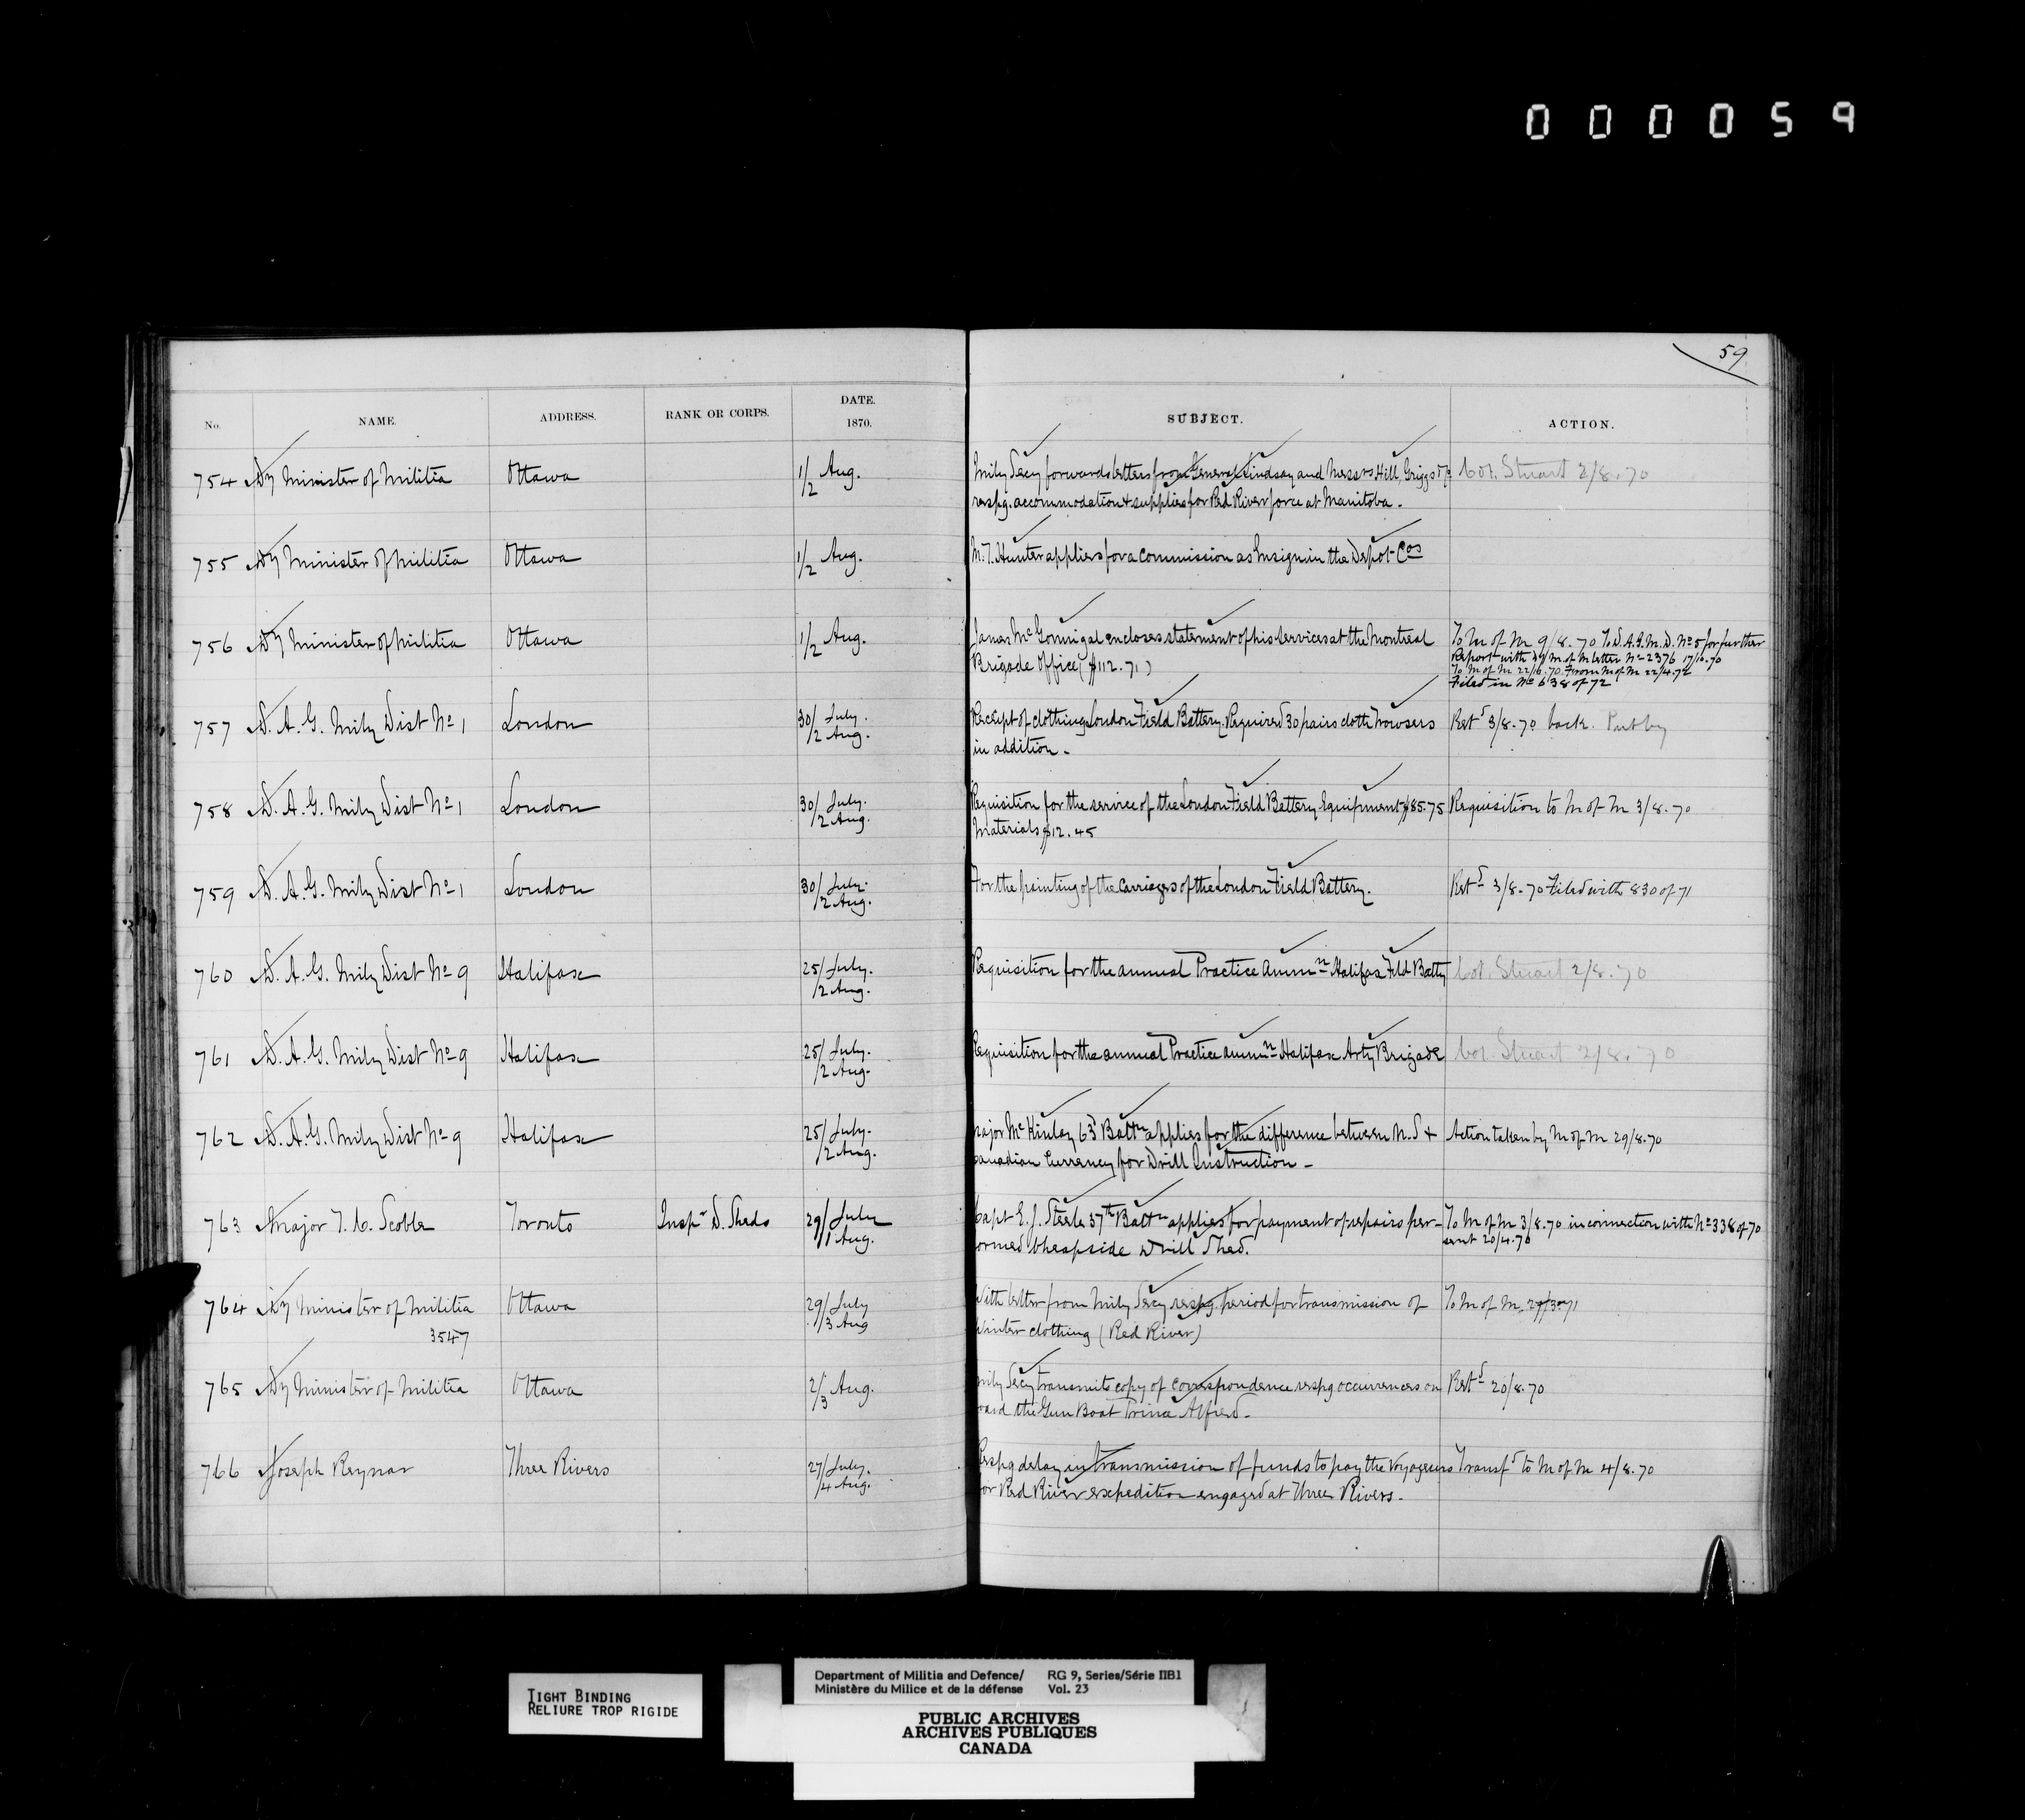 000059
59
No. NAME. ADDRESS. RANK OR CORPS. DATE. 1870. SUBJECT. ACTION.
754 Dy Minister of Militia Ottawa 1/2 Aug. Mily Secy forwards letters from General Lindsay and Messrs Hill, Griggs & Co Col. Stuart 2/8.70
respg. accommodation & supplies for Red River force at Manitoba.
755 Dy Minister of Militia Ottawa 1/2 Aug. M. T. Hunter applies for a commission as Ensign in the Depot Cos
756 Dy Minister of Militia Ottawa 1/2 Aug. James McGonnigal encloses statement of his services at the Montreal To M of M 9/8.70 To D.A.G.M.D. No 5 for further
Brigade Office ($112.71) Report with Dy M of M letter No 2376 17/10.70
To M of M 22/10.70 From M of M 22/4.72
Filed in No 638 of 72
757 D. A. G. Mily Dist No 1 London 30/ July. Receipt of clothing London Field Battery. Required 30 pairs cloth trowsers Retd 3/8.70 back. Put by
/2 Aug. in addition -
758 D. A. G. Mily Dist No 1 London 30/ July. Requisition for the service of the London Field Battery Equipment $85.75 Requisition to M of M 3/8.70
/2 Aug. Materials $12.45
759 D. A. G. Mily Dist No 1 London 30/ July. For the painting of the carriages of the London Field Battery. Retd 3/8.70 Filed with 830 of 71
/2 Aug.
760 D. A. G. Mily Dist No 9 Halifax 25/ July. Requisition for the annual Practice Ammn Halifax Fild Batty Col. Stuart 2/8.70
/2 Aug.
761 D. A. G. Mily Dist No 9 Halifax 25/ July. Requisition for the annual Practice Ammn Halifax Arty Brigade Col. Stuart 2/8.70
/2 Aug.
762 D. A. G. Mily Dist No 9 Halifax 25/ July. Major McKinlay 63d Battn applies for the difference between N.S & Action taken by M of M 29/8.70
/2 Aug. Canadian Currency for Drill Instruction -
763 Major T. C. Scoble Toronto Inspr D. Sheds 29/ July Capt E. J. Steele 37th Battn applies for payment of repairs per- To M of M 3/8.70 in connection with No 338 of 70
/1 Aug. ormed Cheapside Drill Shed. sent 20/4.70
764 Dy Minister of Militia Ottawa 29/ July With letter from Mily Secy respg. period for transmission of To M of M. 29/3.71
3547 /3 Aug Winter clothing (Red River)
765 Dy Minister of Militia Ottawa 2/3 Aug. Mily Secy transmits copy of correspondence respg occurrences on Retd 20/8.70
oard the Gun Boat Prince Alfred.
766 Joseph Reynar Three Rivers 27/ July. Respg delay in transmission of funds to pay the Voyageurs Transfd to M of M 4/8.70
/4 Aug. for Red River expedition engaged at Three Rivers.
TIGHT BINDING
RELIURE TROP RIGIDE
Department of Militia and Defence/ RG 9, Series/Série IIB1
Ministère du Milice et de la défense Vol. 23
PUBLIC ARCHIVES
ARCHIVES PUBLIQUES
CANADA